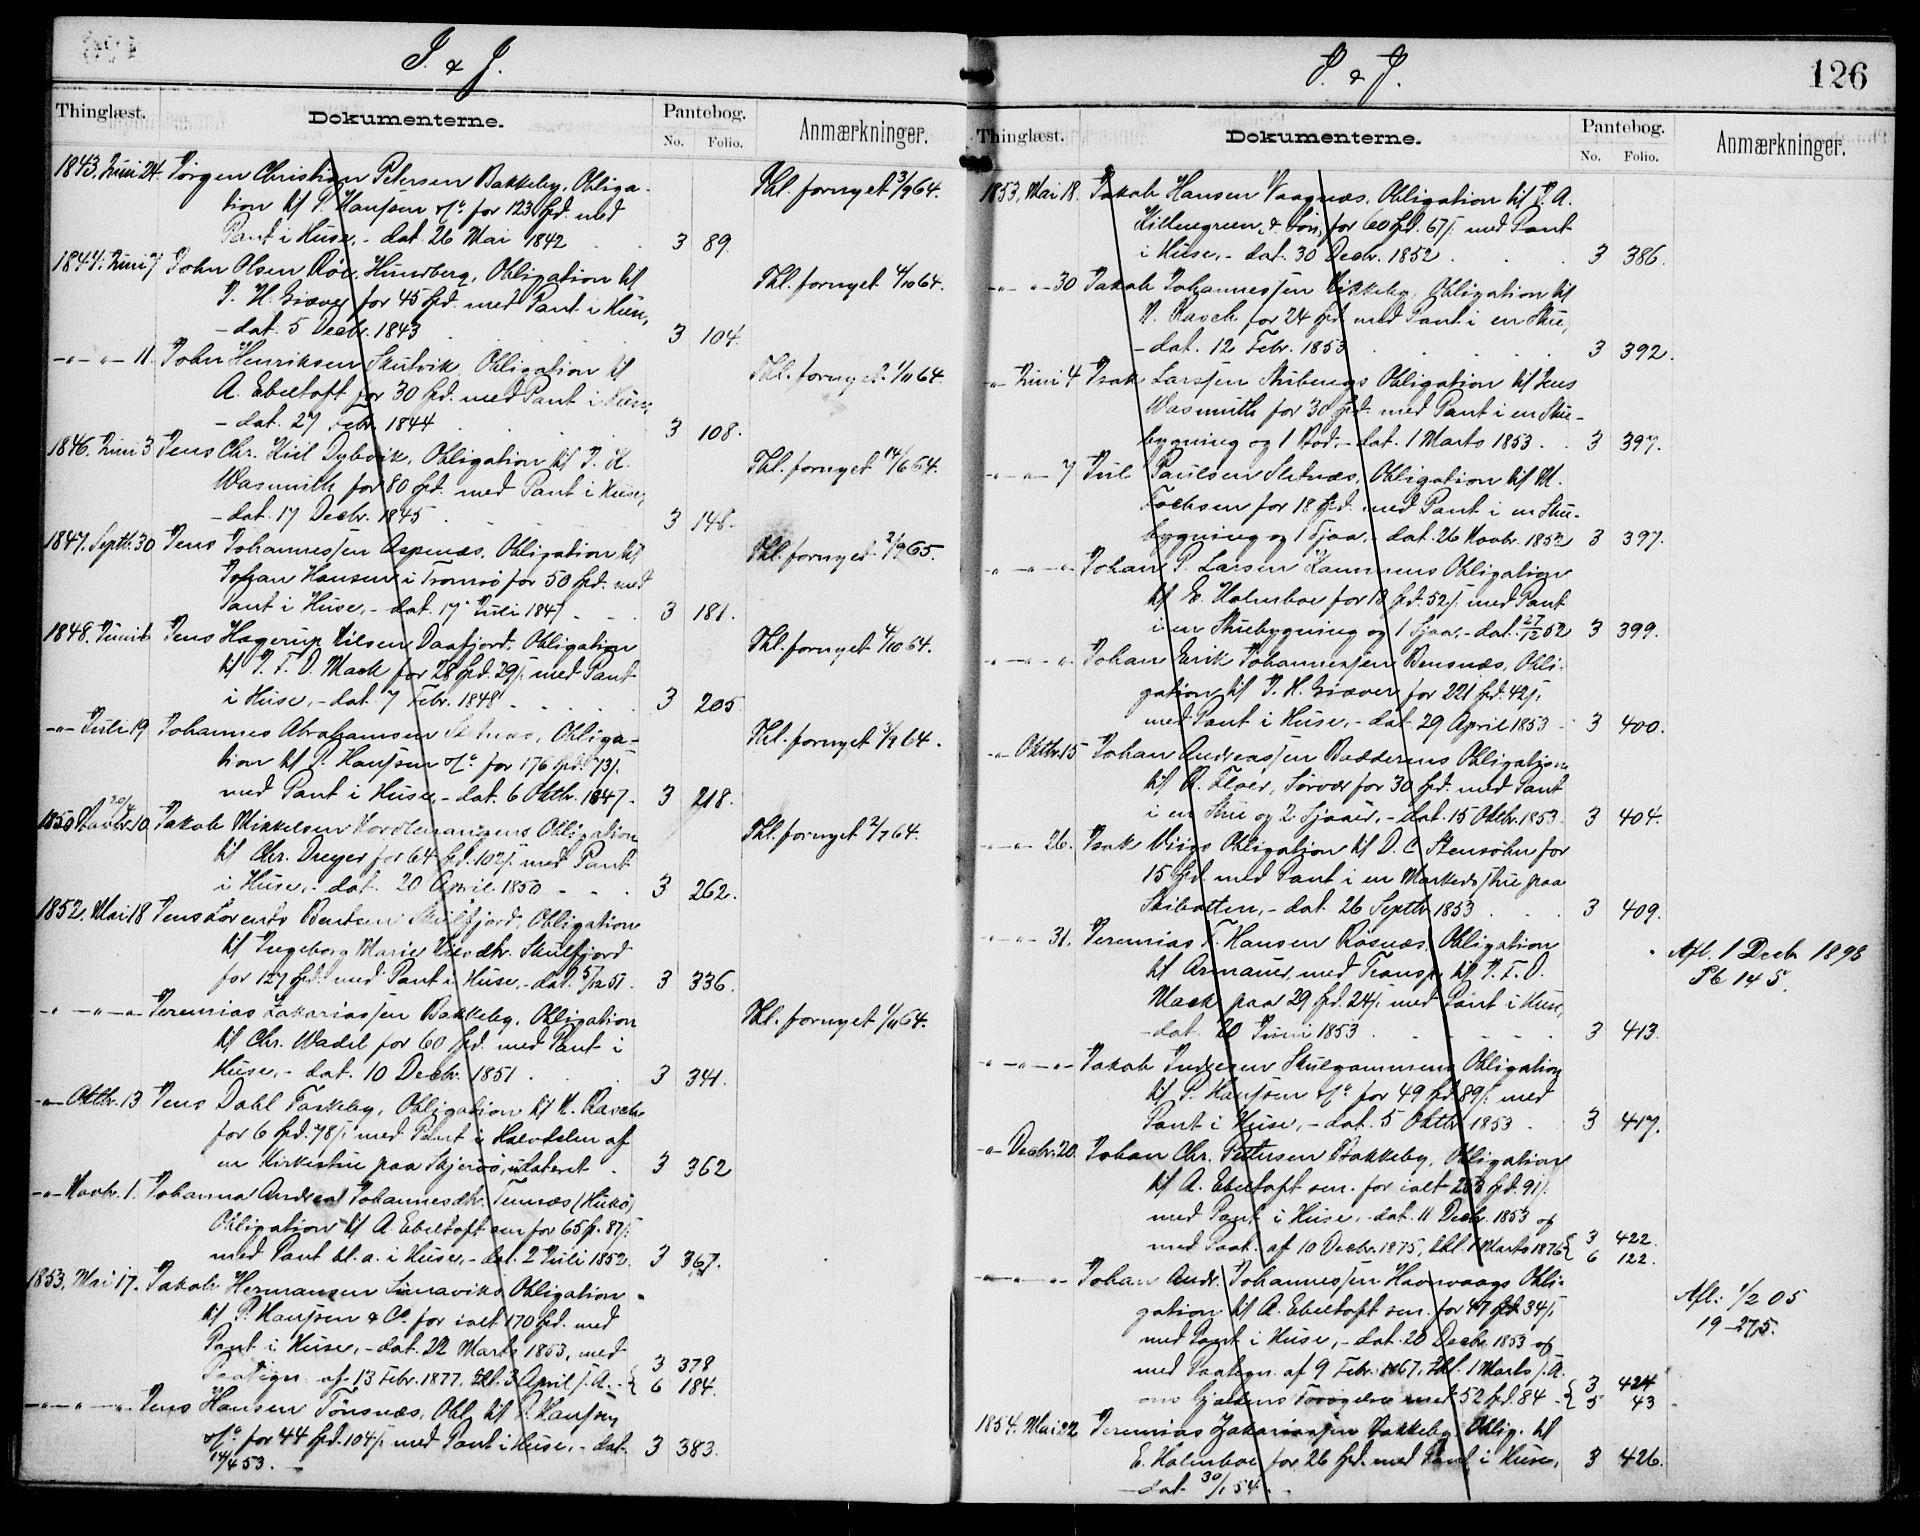 I. & J.
Thinglæst. Dokumenterne. Pantebog. Anmærkninger.
No. Folio.
1843. Juni 24. Jørgen Christian Petersen Bakkeby, Obliga- Thl. fornyet 3/9 64.
tion til P. Hansen & Co. for 123 Spd. med
Pant i Huse, - dat. 26 Mai 1842 3 89.
1844. Juni 7 John Olsen Hundberg, Obligation til Thl. fornyet 4/10 64.
J. H. Giæver for 45 Spd. med Pant i Huse,
- dat. 5 Decbr. 1843 3 104.
-"- "- 11. John Henriksen Skutvik, Obligation til Thl. fornyet 1/11 64.
A. Ebeltoft for 30 Spd. med Pant i Huse,
- dat. 27 Febr. 1844 3 108.
1846. Juni 3 Jens Chr. Kiil Dybvik, Obligation til J. H. Thl. fornyet 14/6 64.
Wasmuth for 80 Spd. med Pant i Huse,
- dat. 17 Decbr. 1845 3 148.
1847. Septbr. 30 Jens Johannessen Aspenæs, Obligation til Thl. fornyet 2/9 65.
Johan Hansen i Tromsø for 50 Spd. med
Pant i Huse, - dat. 17 Juli 1847 3 181.
1848. Juni 6 Jens Hagerup Nilsen Daafjord, Obligation Thl. fornyet 4/10 64.
til J. F. D. Mack for 28 Spd. 29 s. med Pant
i Huse, - dat. 7 Febr. 1848 3 205
-"- Juli 19 Johannes Abrahamsen Sletnæs, Obliga- Thl. fornyet 3/9 64.
tion til P. Hansen & Co. for 176 Spd. 73 s.
med Pant i Huse, - dat. 6 Oktbr. 1847. 3 218.
1850 10. Jakob Mikkelsen Nordlenangens Obligation Thl. fornyet 2/7 64.
til Chr. Dreyer for 64 Spd. 102 s. med Pant
i Huse, - dat. 20 April 1850 3 262.
1852. Mai 18 Jens Lorents Bentsen Skulfjord, Obligation
til Ingeborg Marie Skulfjord
for 127 Spd. med Pant i Huse, - dat. 5/12 51. 3 336.
-"-"- Jeremias Zakariassen Bakkeby, Obligation Thl. fornyet 1/11 64.
til Chr. Wadel for 60 Spd. med Pant i
Huse, - dat. 10 Decbr. 1851 3 341.
-"- Oktbr. 13 Jens Dahl Taskeby, Obligation til N. Rasch
for 6 Spd. 78 s. med Pant i Halvdelen af
en Kirkestue paa Skjervø, udateret 3 362
-"- Novbr. 1. Johanna Andrea Johannesdtr. Tennæs (Husø)
Obligation til A Ebeltoft sen for 65 Sp. 87 s.
med Pant bl. a. i Huse, - dat. 2 Juli 1852. 3 367.
1853. Mai 17. Jakob Hermansen Simaviks Obligation
til P. Hansen & Co. for ialt 170 Spd. med
Pant i Huse, - dat. 22 Marts 1853, med 3 378
Paategn. af 13 Febr. 1877, thl. 3 April s. A. 6 184.
-"-"- Jens Hansen Tønsnæs, Obl. til P. Hansen
& Co. for 44 Spd. 104 s. med Pant i Huse, - dat. 3 383.
14/4 53.
I. & J. 126
Thinglæst. Dokumenterne. Pantebog. Anmærkninger.
No. Folio.
1853. Mai 18. Jakob Hansen Vaagnæs, Obligation til J. A.
Killengreen & Søn, for 60 Spd. 67 s. med Pant
i Huse, - dat. 30 Decbr. 1852 3 386.
-"- "- 30 Jakob Johannessen Vikkeby, Obligation til
N. Rasch for 24 Spd. med Pant i en Stue,
- dat. 12 Febr. 1853 3 392.
-"- Juni 4 Isak Larssen Obligation til Jens
Wasmuth for 30 Spd. med Pant i en Stue-
bygning og 1 Bod, - dat. 1 Marts 1853 3 397.
-"-"- 7 Jul Paulsen Sletnæs, Obligation til M.
Fochsen for 18 Spd. med Pant i en Stue-
bygning og 1 Sjaa, - dat. 26 Novbr. 1852 3 397.
-"-"- Johan P. Larsen Obligation
til E. Holmboe for 18 Spd. 52 s. med Pant
i en Stuebygning og 1 Sjaa, - dat. 27/12 52 3 399.
-"-"- Johan Erik Johannessen Bensnæs, Obli-
gation til J. H. Giæver for 221 Spd. 42 s.
med Pant i Huse, - dat. 29 April 1853 3 400.
-"- Oktbr. 15 Johan Andreassen Badderens Obligation
til A. Floer, Sørvær for 30 Spd. med Pant
i en Stue og 2 Sjaaer, - dat. 15 Oktbr. 1853. 3 404.
-"-"- 26. Isak Obligation til D. C. Stensohn for
15 Spd. med Pant i en Markedsstue paa
Skibotten, - dat. 26 Septbr. 1853 3 409.
-"-"- 31. Jeremias F. Hansen Rosnæs, Obligation Afl. 1 Decbr 1898
til Armauer, med Transp. til J. F. D. Pb 14 5.
Mack paa 29 Spd. 24 s. med Pant i Huse,
- dat. 20 Juni 1853 3 413.
-"-"- Jakob Skulgammens Obligation
til P. Hansen & Co. for 49 Spd. 89 s. med
Pant i Huse, - dat. 5 Oktbr. 1853 3 417.
-"- Decbr. 20. Johan Chr. Pettersen Bakkeby, Obligation
til A. Ebeltoft sen. for ialt 253 Spd. 91 s.
med Pant i Huse, - dat. 11 Decbr. 1853 og
med Paat. af 10 Decbr. 1875, thl. 1 Marts 1876 3 422.
6 122.
-"-"- Johan Andr. Johannessen Havnvaags Obli-
gation til A. Ebeltoft sen. for 47 Spd. 34 s. Afl: 1/2 05
med Pant i Huse, - dat. 20 Decbr. 1853 og 19 - 275.
med Paategn. af 9 Febr. 1867, thl. 1 Marts s. A.
om Gjældens Forøgelse med 52 Spd. 84 3 424
5 43
1854. Mai 22 Jeremias Zakariassen Bakkeby, Oblig. til
E. Holmboe for 26 Spd. med Pant i Huse, 3 426.
- dat 30/1 54.